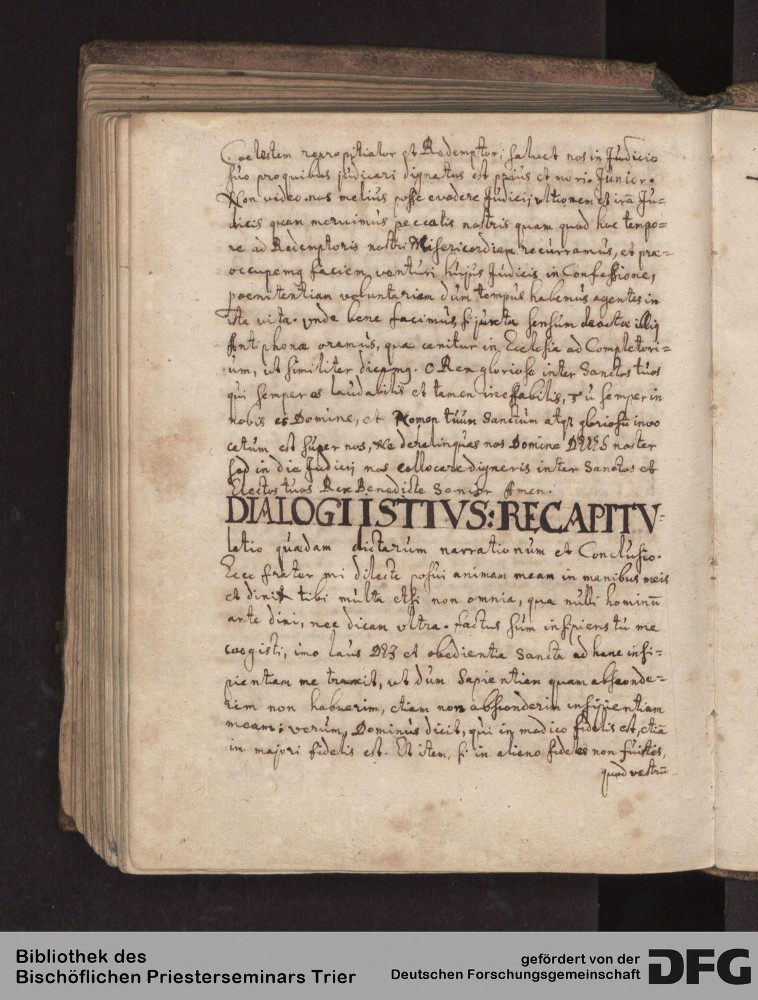 Coelestem repropitiator et Redemptor; salvet nos in Judicio
suo pro quibus judicari dignatus est prius et mori. Junior.
Non video nos melius posse evadere Judicij ultionem et irã Ju=
dicis quam meruimus peccatis nostris quam quod hoc tempo=
re ad Redemptoris nostri Misericordiam recurramus, et præ=
occupemq faciem venturi hujus Judicis in Confessione,
poenitentiam voluntariam dum tempus habemus agentes in
ista vita. Unde bene facimus, si juxta sensum devotæ illiq
Antiphonæ oramus, quæ canitur in Ecclesia ad Completori=
um, ut similiter dicamq. O Rex gloriose inter Sanctos tuos
qui semper es laudabilis et tamen ineffabilis, tu semper in
nobis es Domine, et Nomen tuum Sanctum atqz gloriosũ invo
catum est super nos, Ne derelinquas nos Domine DEUS noster
sed in die Judicij nos collocare digneris inter Sanctos et
Electos tuos Rex Benedicte Senior Amen.
DIALOGI ISTIVS: RECAPITV=
latio quædam dictarum narrationum et Conclusio.
Ecce frater mi dilecte posui animam meam in manibus meis
et dixi tibi multa etsi non omnia, quæ nulli hominũ
ante dixi, nec dicam ultra. factus sum insipiens tu me
coegisti, imo laus DEI et obedientia Sancta ad hanc insi=
pientiam me traxit, ut dum Sapientiam quam absconde=
rem non habuerim, etiam non absconderim insipientiam
meam; verum, Dominus dicit, qui in modico fidelis est, etiã
in majori fidelis est. Et item, si in alieno fideles non fuistis,
quod vestrũ
Bibliothek des
Bischöflichen Priesterseminars Trier
gefördert von der
Deutschen Forschungsgemeinschaft
DFG